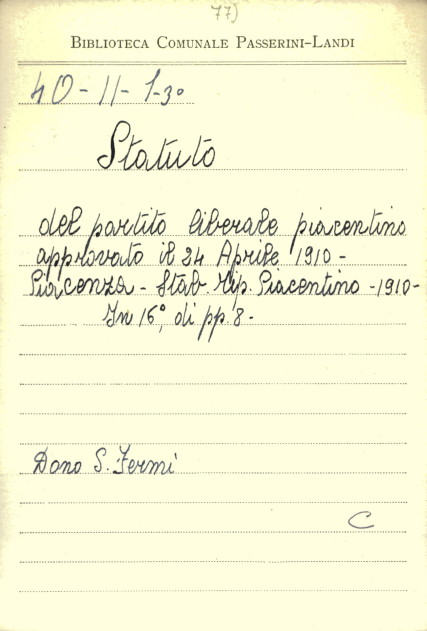 77)
BIBLIOTECA COMUNALE PASSERINI-LANDI
40-11-1-3º
Statuto
del partito liberale piacentino
approvato il 24 Aprile 1910-
Piacenza - Stab. Tip. Piacentino -1910-
In 16º, di pp. 8-
Dono S. Fermi
C